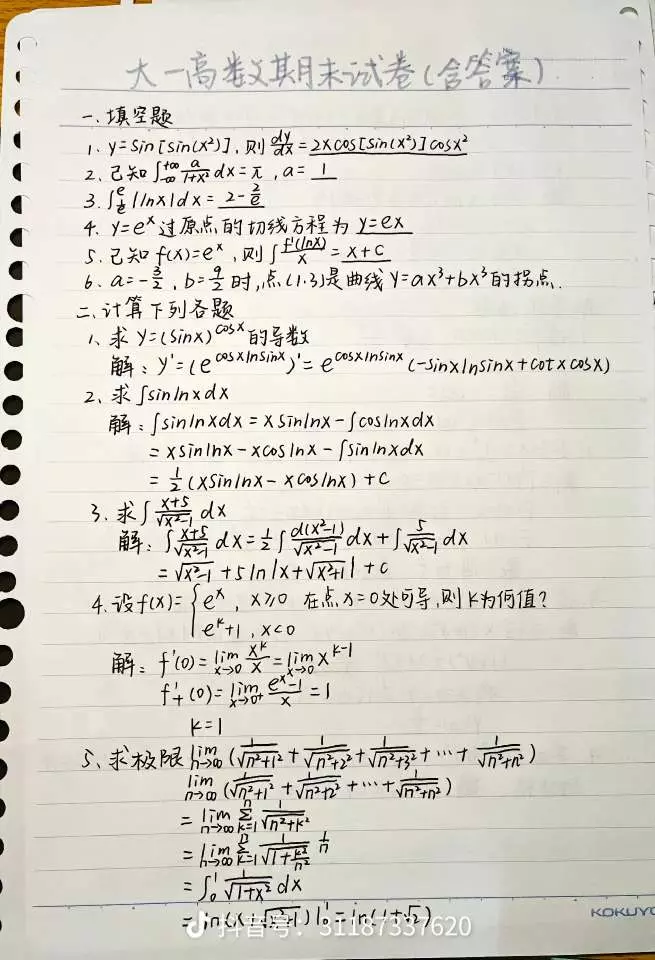 大一高数期末试卷(含答案)
一、填空题
1. y=sin[sin(x²)], 则 dy/dx = 2xcos[sin(x²)]cosx²
2. 已知∫_{-∞}^{+∞} a/(1+x²) dx=π, a= 1
3. ∫_{1/e}^{e} |lnx|dx= 2-2/e
4. y=e^x 过原点的切线方程为 y=ex
5. 已知 f(x)=e^x, 则∫ f'(lnx)/x = x+c
6. a=-3/2, b=9/2 时, 点(1.3)是曲线 y=ax³+bx³的拐点.
二、计算下列各题
1、求 y=(sinx)^{cosx}的导数
解: y'=(e^{cosxlnsinx})'=e^{cosxlnsinx}(-sinxlnsinx+cotxcosx)
2、求∫sinlnxdx
解:∫sinlnxdx=xsinlnx-∫coslnxdx
=xsinlnx-xcoslnx-∫sinlnxdx
=1/2(xsinlnx-xcoslnx)+c
3、求∫ (x+5)/√(x²-1) dx
解:∫ (x+5)/√(x²-1) dx=1/2∫ d(x²-1)/√(x²-1) dx+∫ 5/√(x²-1) dx
=√(x²-1)+5ln|x+√(x²+1)|+c
4、设f(x)={e^x, x≥0 在点x=0处可导,则k为何值?
e^k+1, x<0
解: f'(0)=lim_{x→0} x^k/x=lim_{x→0} x^{k-1}
f'₊(0)=lim_{x→0⁺} (e^x-1)/x=1
k=1
5、求极限 lim_{n→∞}(1/√(n²+1²)+1/√(n²+2²)+1/√(n²+3²)+…+1/√(n²+n²))
lim_{n→∞}(1/√(n²+1²)+1/√(n²+2²)+…+1/√(n²+n²))
=lim_{n→∞} Σ_{k=1}^{n} 1/√(n²+k²)
=lim_{n→∞} Σ_{k=1}^{n} 1/√(1+k²/n²) 1/n
=∫_0^1 1/√(1+x²) dx
=ln(x+√(x²+1))|_0^1=ln(1+√2)
KOKUYO
抖音号: 31187337620